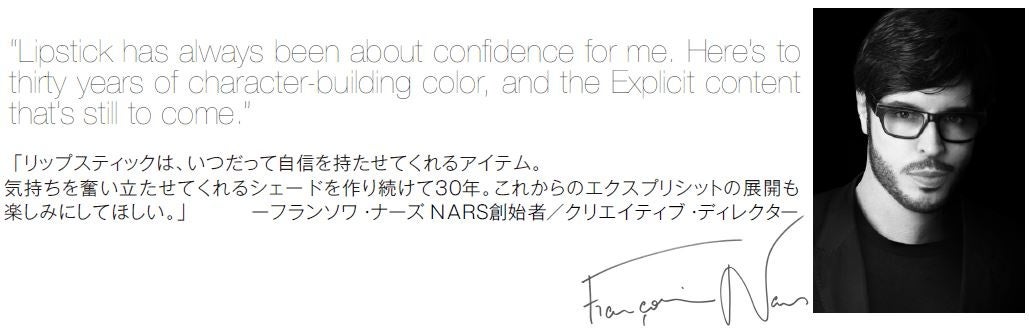 "Lipstick has always been about confidence for me. Here's to
thirty years of character-building color, and the Explicit content
that's still to come."
「リップスティックは、いつだって自信を持たせてくれるアイテム。
気持ちを奮い立たせてくれるシェードを作り続けて30年。これからのエクスプリシットの展開も
楽しみにしてほしい。」 ーフランソワ・ナーズ NARS創始者／クリエイティブ・ディレクター
François Nars